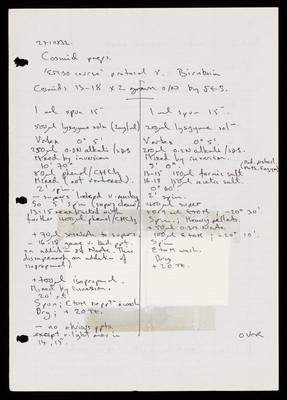 27·10·82.
Cosmid preps.
course' protocol v. Birnboim
Cosmids 13-18 x 2 grown o/n by
1 ml spun 15"
500µl lysozyme soln (2mg/ml)
Vortex 0° 5'
250µl 0.2N alkali/SDS
Mixed by inversion
10' 70°
50µl phenol/CHCl3
Mixed (not vortexed).
2' spin
- supers kept
50 5' spin (supers clear)
13-15 reextracted with
further 100µl phenol/CHCl3
+ 90µl to supers.
- 16-18 gave v. bad ppt.
on addition of
disappeared on addition of
isopropanol).
+ 700µl isopropanol
Mixed by inversion
20' rt
Spun; EtOH wash
Dry; + 20 TE.
- no obvious ppts
except v. light ones in
14, 15.
1 ml spun 15"
200µl lysozyme
Vortex 0° 5'
200µl 0.2N alkali/SDS
Mixed by inversion.
5' 0°
13-15 150µl formic salt
16-18 150µl acetic salt.
0° 60'
5' spin.
400µl super
EtOH -20° 30'
Spin; Heavy pellets.
+ 50µl 0.3M
100µl EtOH; -20° 10'.
Spin
EtOH wash
Dry
+ 20 TE.
OVER